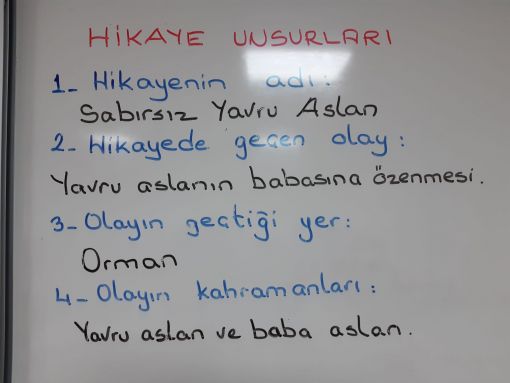 HİKAYE UNSURLARI
1- Hikayenin adı:
Sabırsız Yavru Aslan
2- Hikayede geçen olay:
Yavru aslanın babasına özenmesi.
3- Olayın geçtiği yer:
Orman
4- Olayın kahramanları:
Yavru aslan ve baba aslan.